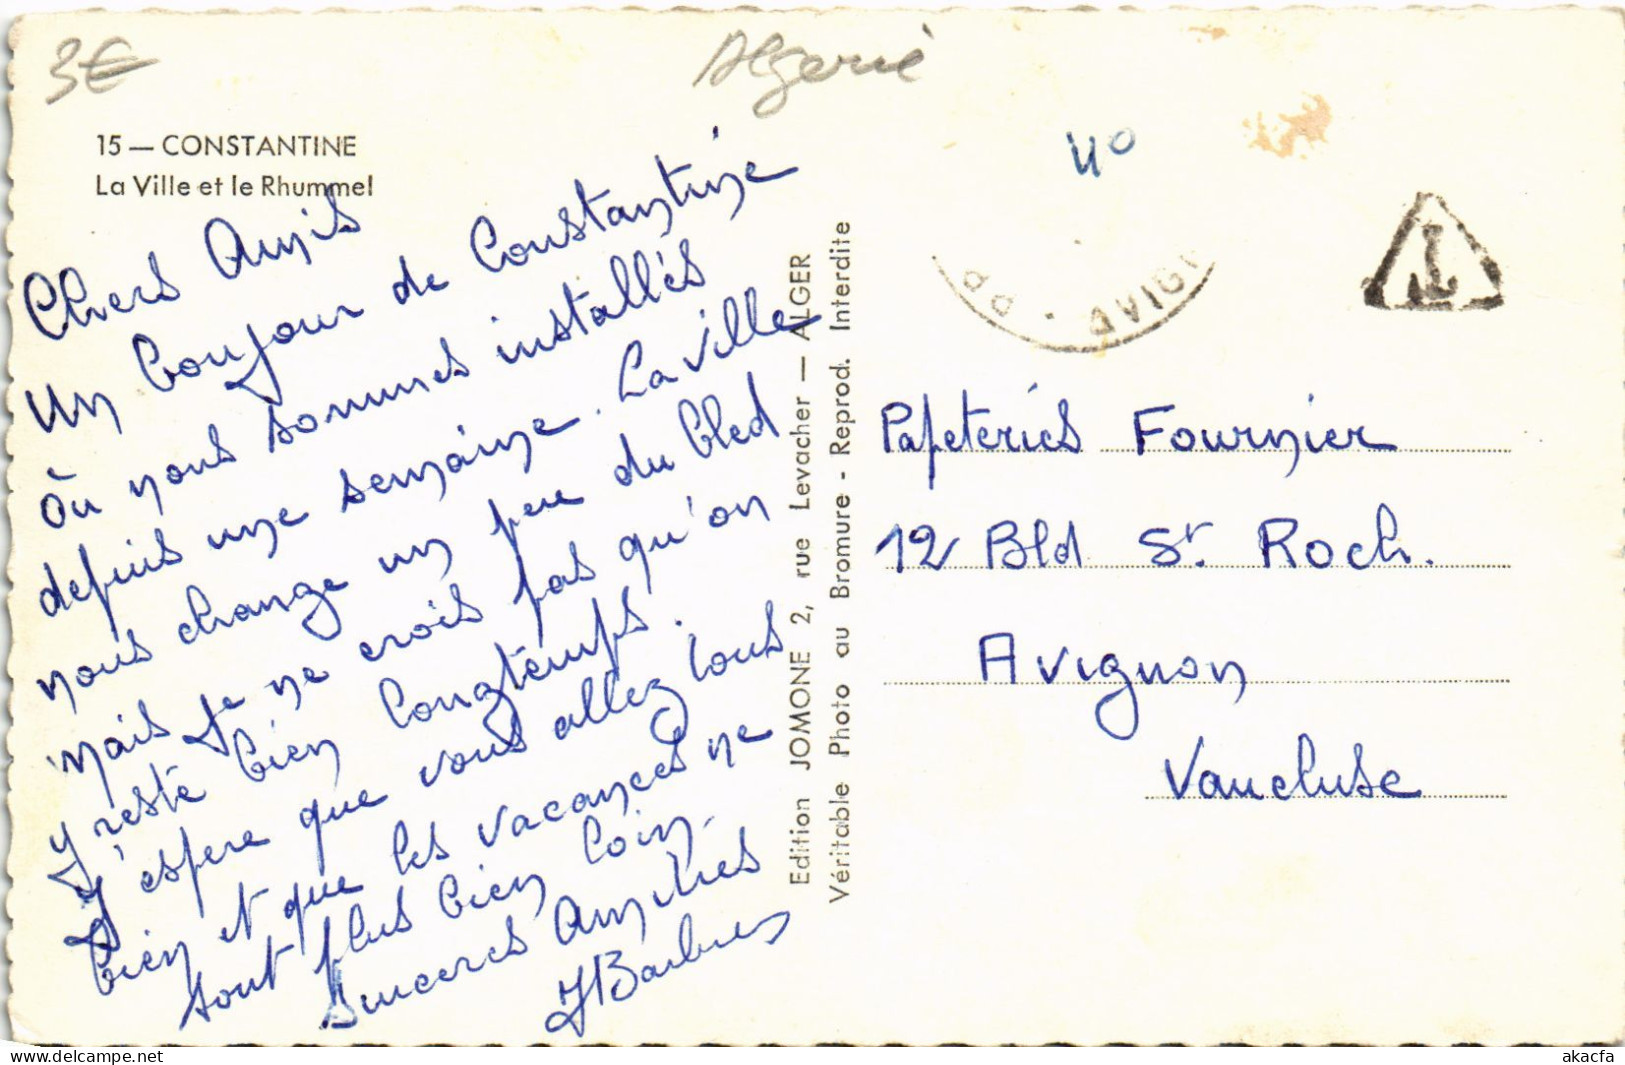 3€
Algerie
15 — CONSTANTINE
La Ville et le Rhummel
40
AVIGN
T
Chers Amis
Un bonjour de Constantine
où nous sommes installés
depuis une semaine. La ville
nous change un peu du bled
mais je ne crois pas qu'on
y reste bien longtemps.
J'espere que vous allez tous
bien et que les vacances ne
sont plus bien loin.
Sinceres Amitiés
Edition JOMONE 2, rue Levacher — ALGER
Véritable Photo au Bromure - Reprod. Interdite
Papeteries Fournier
12 Bld St. Roch.
Avignon
Vaucluse
delcampe.net
akacfa